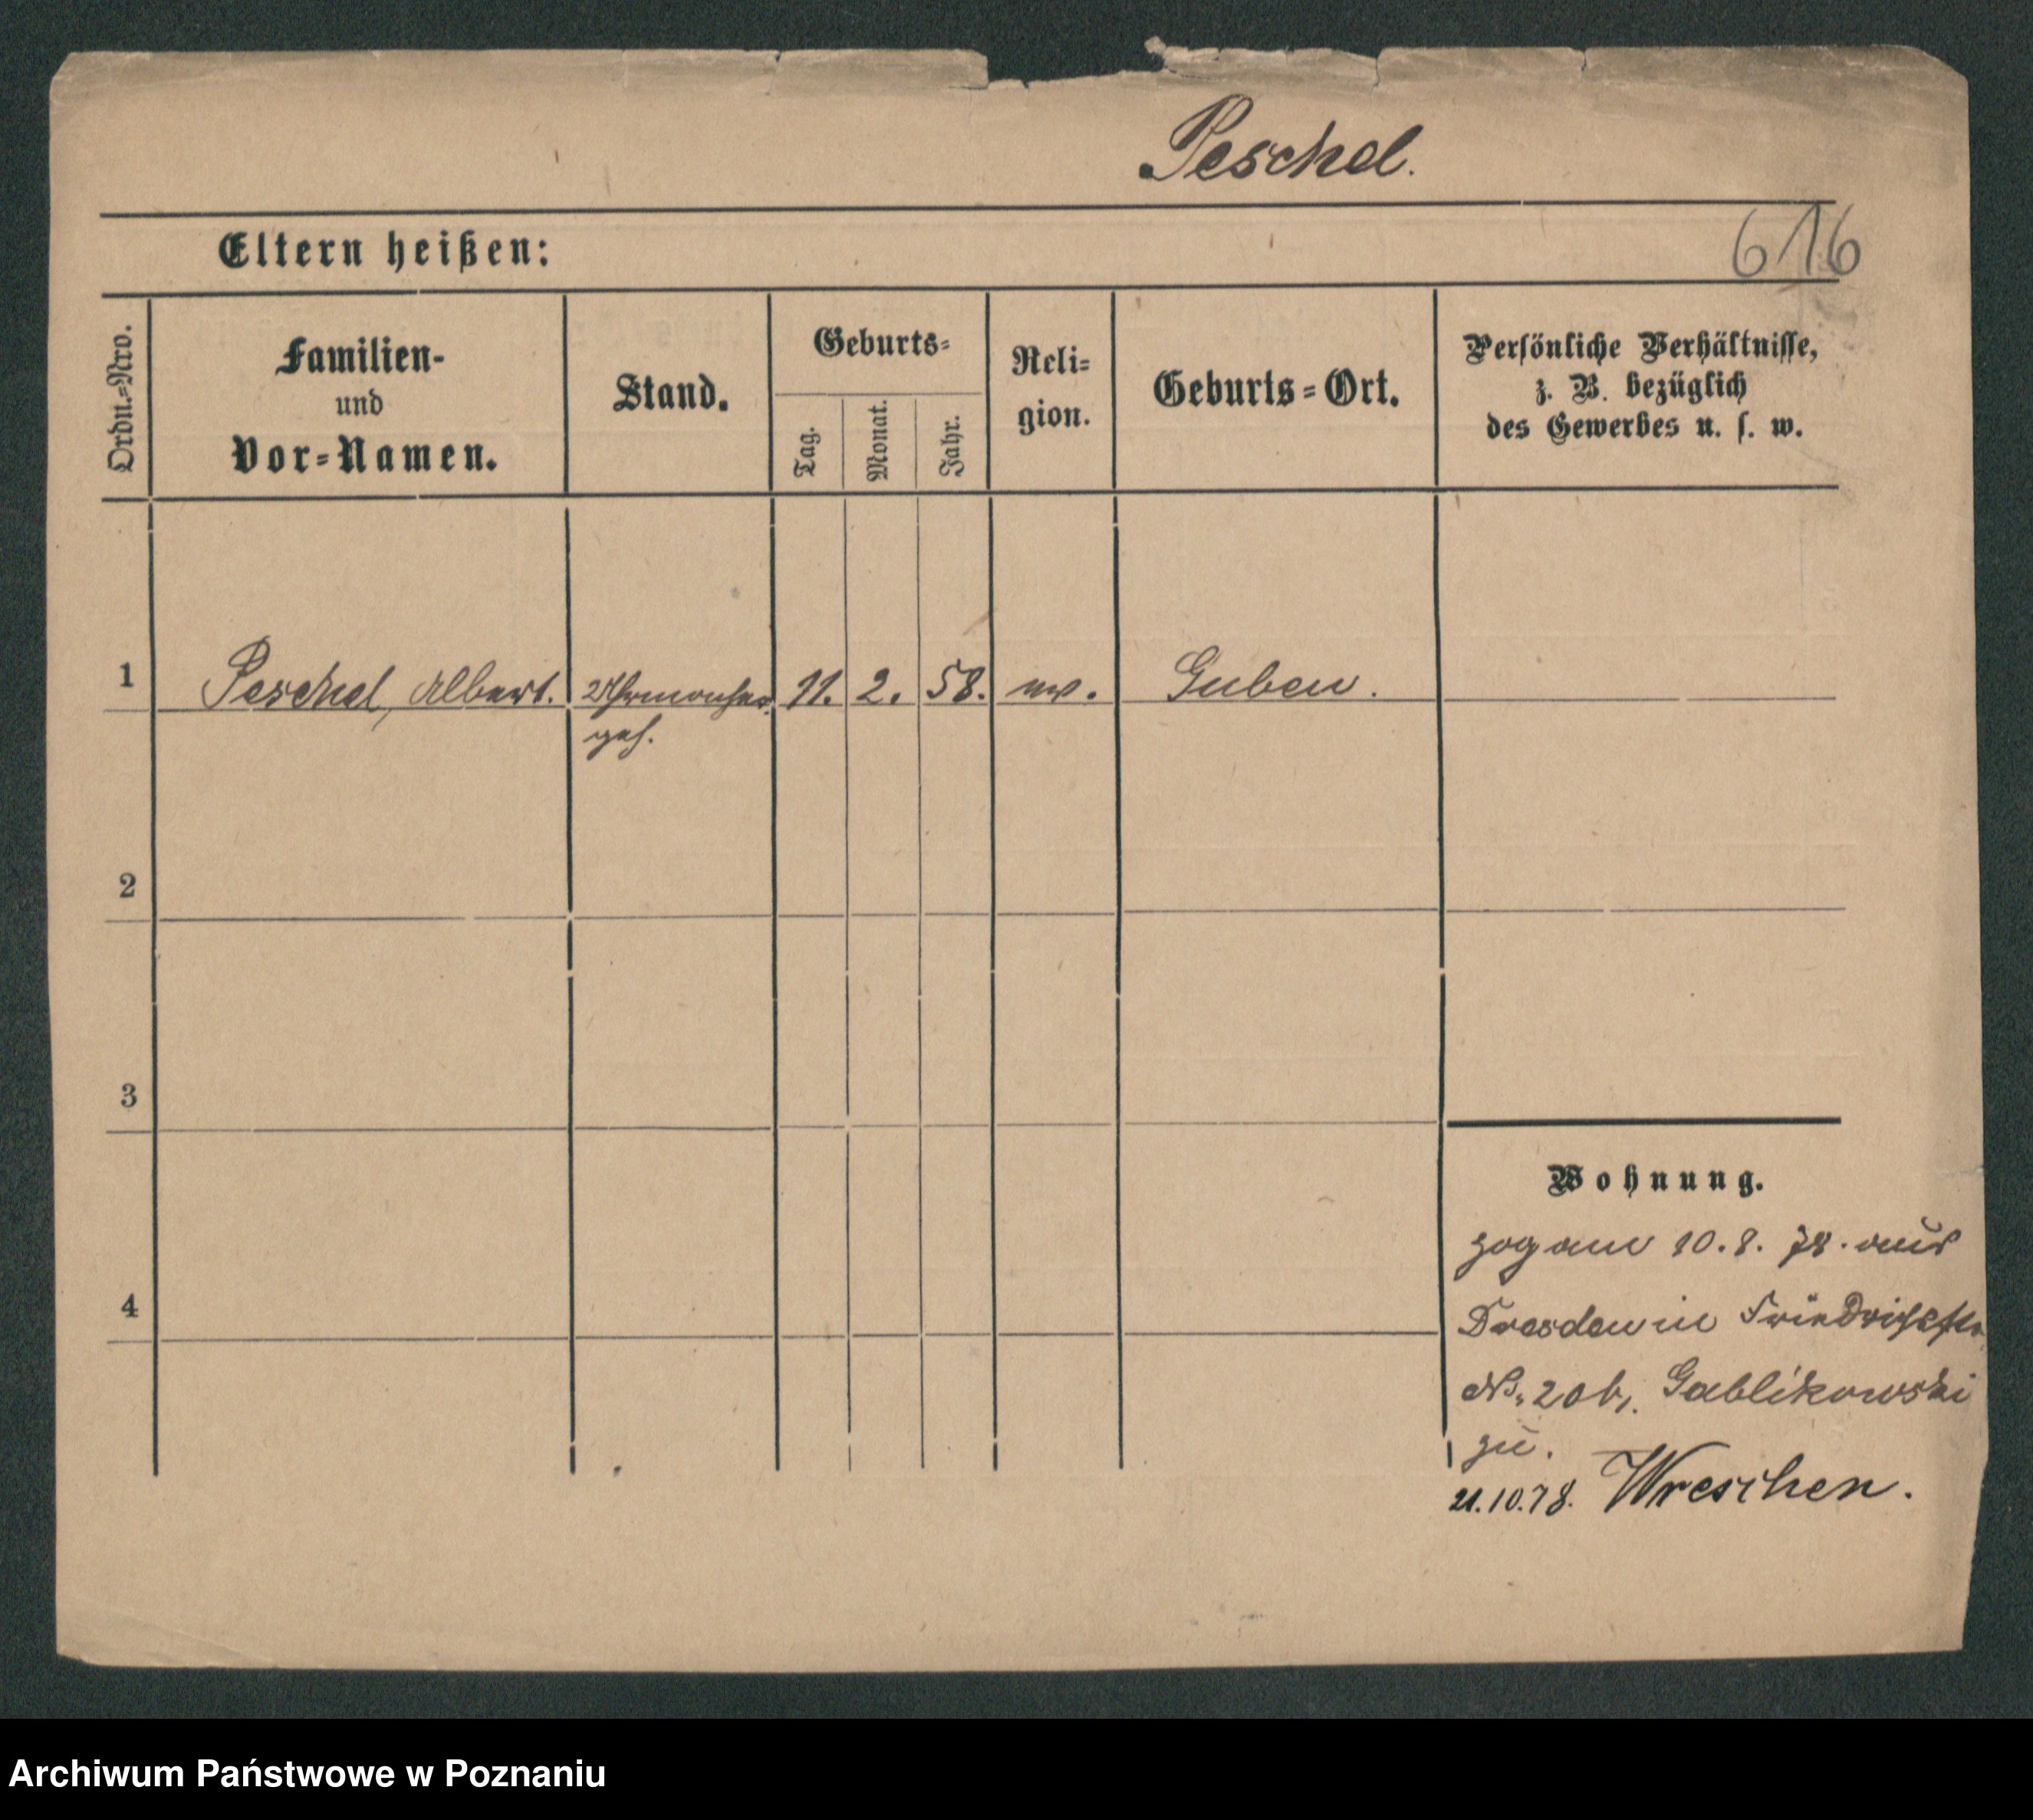 Peschel.
616
Eltern heißen:
Ordn.=Nro.
Familien-
und
Vor=Namen.
Stand.
Geburts=
Tag.
Monat.
Jahr.
Reli=
gion.
Geburts=Ort.
Persönliche Verhältnisse,
z. B. bezüglich
des Gewerbes u. s. w.
1 Peschel, Albert. Uhrmacher 11. 2. 58. ev. Guben.
geh.
2
3
4
Wohnung.
zog am 10. 8. 78. aus
Dresden in Friedrichstr.
No. 20 b, Gablikowski
zu.
21.10.78. Wreschen.
Archiwum Państwowe w Poznaniu